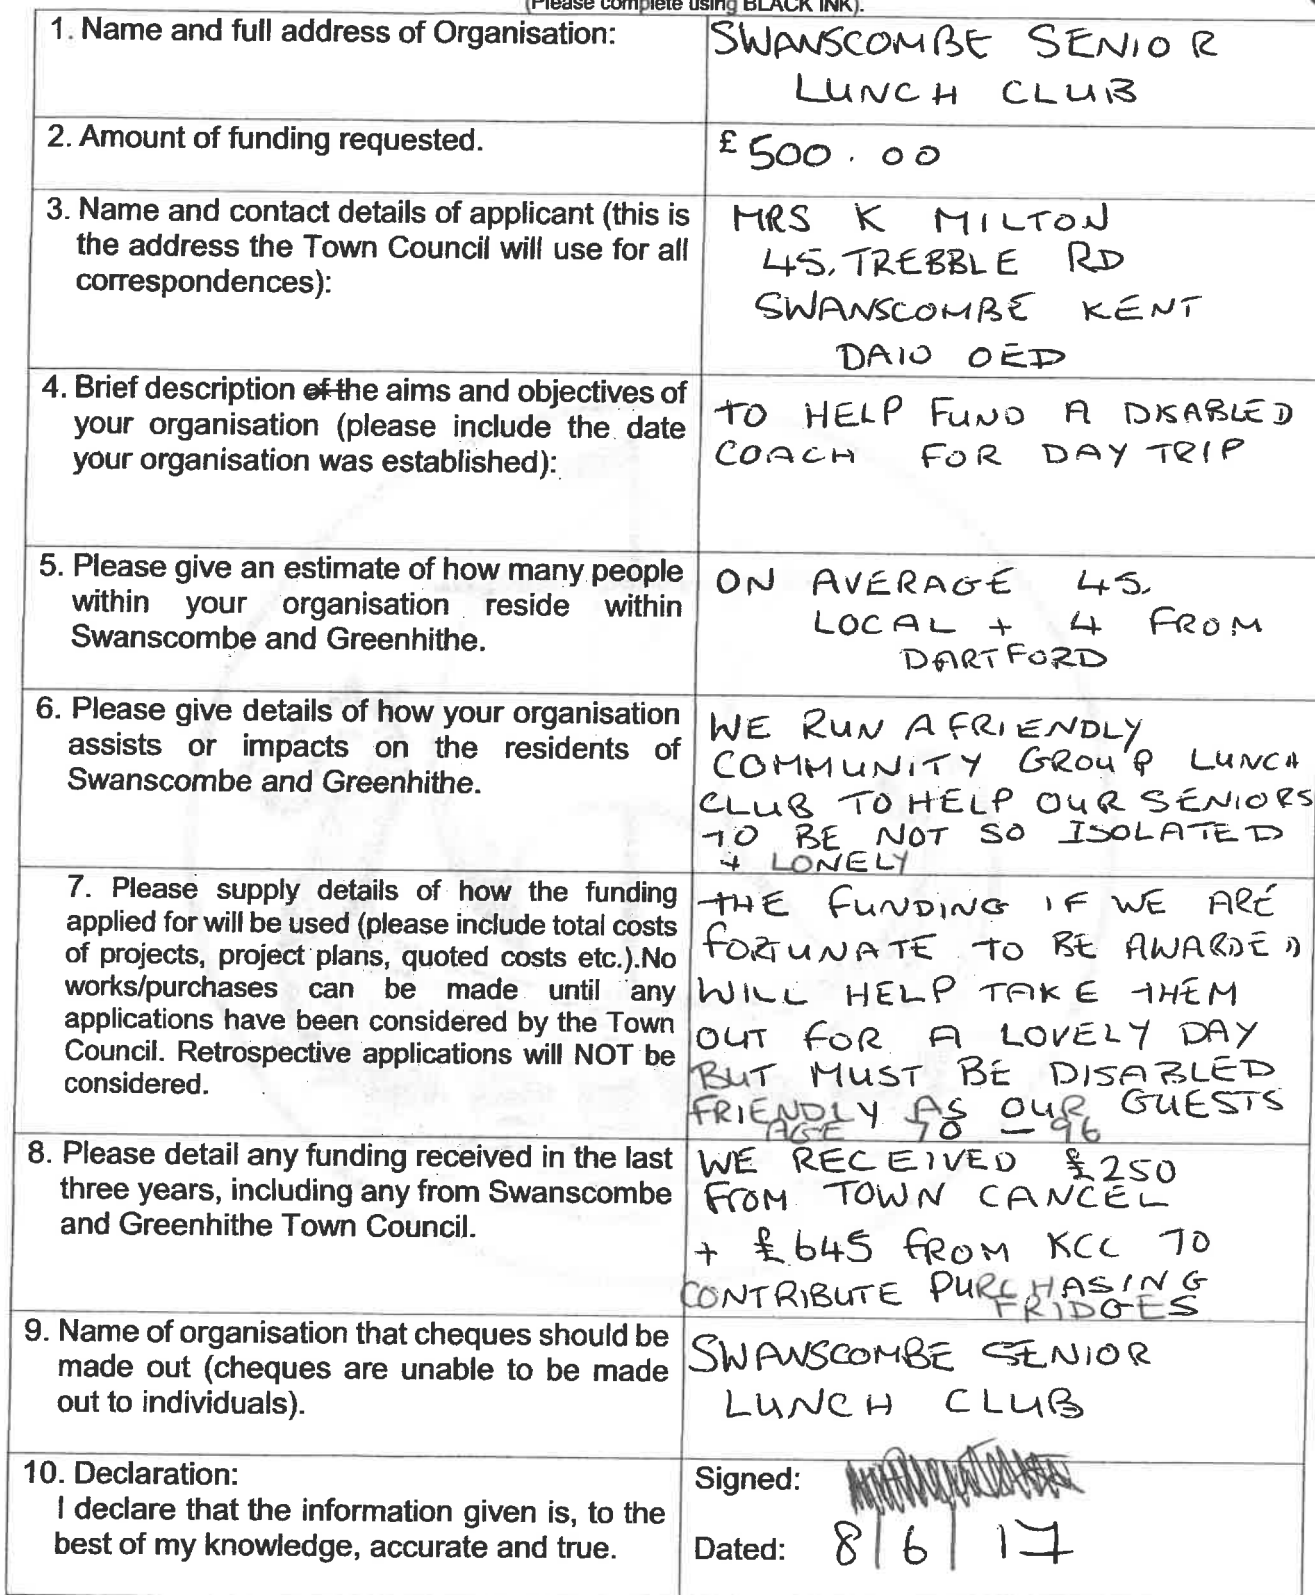 (Please complete using BLACK INK).
1. Name and full address of Organisation:
SWANSCOMBE SENIOR
LUNCH CLUB
2. Amount of funding requested.
£ 500.00
3. Name and contact details of applicant (this is
the address the Town Council will use for all
correspondences):
MRS K MILTON
45, TREBBLE RD
SWANSCOMBE KENT
DA10 0ED
4. Brief description of the aims and objectives of
your organisation (please include the date
your organisation was established):
TO HELP FUND A DISABLED
COACH FOR DAY TRIP
5. Please give an estimate of how many people
within your organisation reside within
Swanscombe and Greenhithe.
ON AVERAGE 45.
LOCAL + 4 FROM
DARTFORD
6. Please give details of how your organisation
assists or impacts on the residents of
Swanscombe and Greenhithe.
WE RUN A FRIENDLY
COMMUNITY GROUP LUNCH
CLUB TO HELP OUR SENIORS
TO BE NOT SO ISOLATED
+ LONELY
7. Please supply details of how the funding
applied for will be used (please include total costs
of projects, project plans, quoted costs etc.).No
works/purchases can be made until any
applications have been considered by the Town
Council. Retrospective applications will NOT be
considered.
THE FUNDING IF WE ARE
FORTUNATE TO BE AWARDED
WILL HELP TAKE THEM
OUT FOR A LOVELY DAY
BUT MUST BE DISABLED
FRIENDLY AS OUR GUESTS
AGE 70 - 96
8. Please detail any funding received in the last
three years, including any from Swanscombe
and Greenhithe Town Council.
WE RECEIVED £250
FROM TOWN CANCEL
+ £645 FROM KCC TO
CONTRIBUTE PURCHASING
FRIDGES
9. Name of organisation that cheques should be
made out (cheques are unable to be made
out to individuals).
SWANSCOMBE SENIOR
LUNCH CLUB
10. Declaration:
I declare that the information given is, to the
best of my knowledge, accurate and true.
Signed:
Dated: 8/6/17